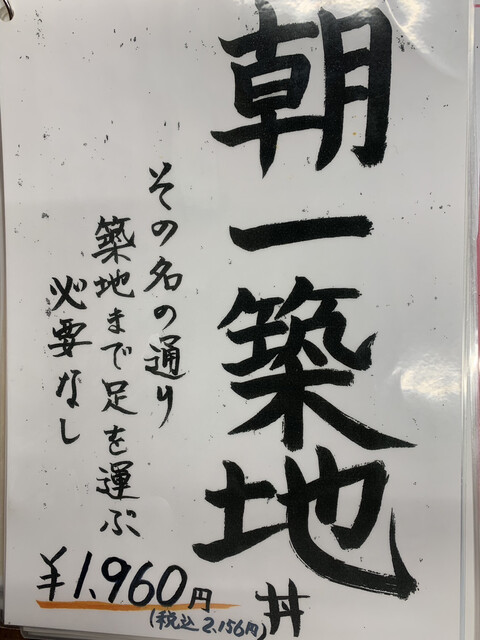 朝一築地丼
その名の通り
築地まで足を運ぶ
必要なし
¥1,960円
(税込2,156円)